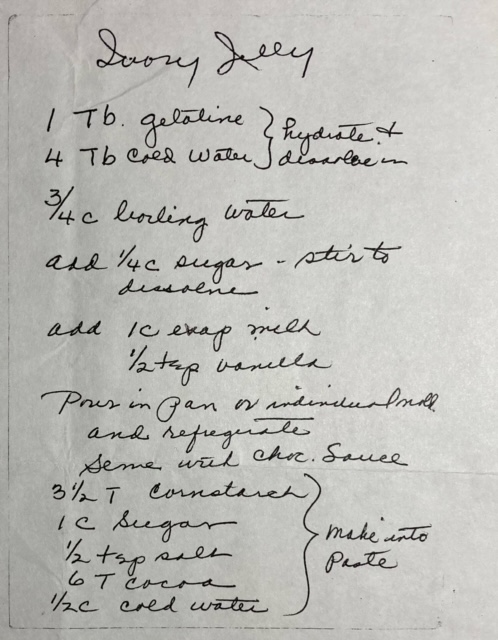 Ivory Jelly
1 Tb. gelatine } hydrate &
4 Tb cold water } dissolve in
3/4 c boiling water
add 1/4 c sugar - stir to
dissolve
add 1c evap milk
1/2 tsp vanilla
Pour in pan or individual mold
and refregerate
Serve with choc. Sauce
3 1/2 T cornstarch
1 c Sugar
1/2 tsp salt } make into
6 T cocoa } Paste
1/2 c cold water